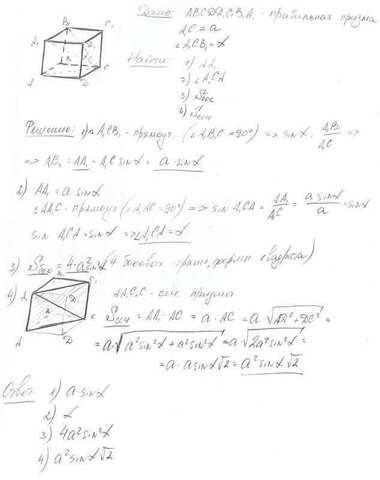 Дано: ABCDA₁B₁C₁D₁ - правильная призма
A₁C = a
∠A₁CB₁ = α
Найти: 1) AA₁
2) ∠A₁CA
3) Sбок
4) Sсеч
Решение: 1) △A₁CB₁ - прямоуг. (∠A₁B₁C = 90°) => sinα = A₁B₁/A₁C =>
=> A₁B₁ = AA₁ = A₁C sinα = a · sinα
2) AA₁ = a sinα
△AA₁C - прямоуг (∠A₁AC = 90°) => sin A₁CA = AA₁/A₁C = a sinα/a = sinα
sin A₁CA = sinα => ∠A₁CA = α
3) Sбок = 4·a² sin²α (4 боковых грани, форма квадрата)
4) AA₁C₁C - сеч призмы
Sсеч = AA₁ · AC = a · AC = a · √AD² + DC² =
= a · √a² sin²α + a² sin²α = a √2a² sin²α =
= a · a sinα √2 = a² sinα √2
Ответ: 1) a · sinα
2) α
3) 4a² sin²α
4) a² sinα √2